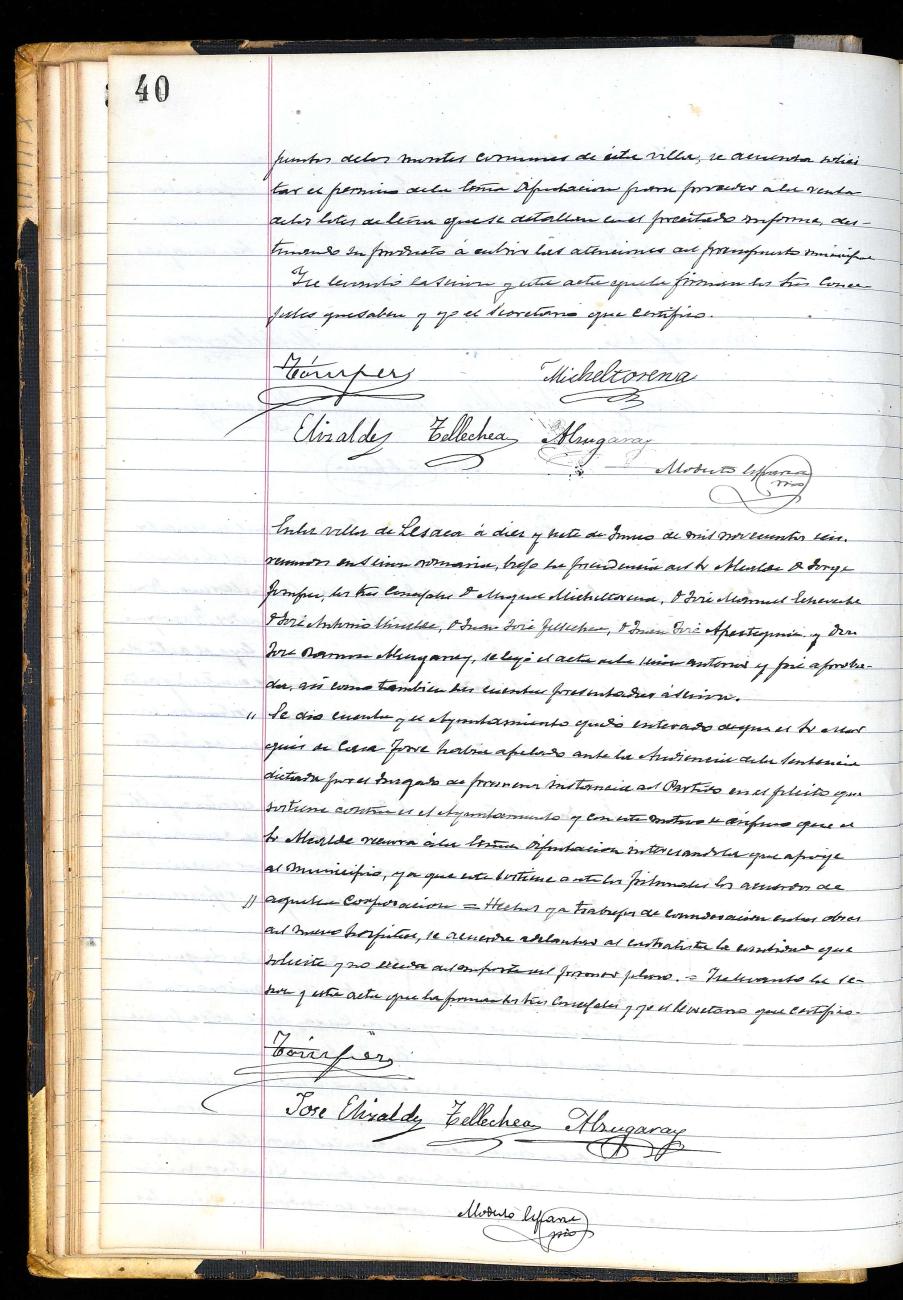 40
puntos de los montes comunes de esta villa, se acuerda solici
tar el permiso de la Excma Diputacion para proceder á la venta
de los lotes de leña que se detallan en el precitado informe, des-
tinando su producto á cubrir las atenciones del presupuesto municipal
Se levantó la sesion y esta acta que la firman los Sres Conce-
jales que saben y yo el Secretario que certifico.
Micheltorena
Elizalde Tellechea Alzugaray
Modesto
En la villa de Lesaca á diez y siete de Junio de mil novecientos
reunidos en sesion ordinaria, bajo la presidencia del Sr Alcalde D Jorge
los Sres Concejales D Miguel Micheltorena, D José Manuel Echeverria
D José Antonio Elizalde, D Juan José Tellechea, D Juan José Apesteguia y Don
José Ramon Alzugaray, se leyó el acta de la sesion anterior y fué aproba-
da, así como tambien las cuentas presentadas á sesion.
" Se dió cuenta y el Ayuntamiento quedó enterado de que el Sr Mar
qués de Casa Torre habia apelado ante la Audiencia de la Sentencia
dictada por el Juzgado de primera instancia del Partido en el pleito que
sostiene contra el Ayuntamiento y con este motivo se dispuso que el
Sr Alcalde recurra á la Excma Diputacion interesandola que apoye
al municipio, ya que este sostiene ante los Tribunales los acuerdos de
" aquella Corporacion = Hechos ya trabajos de consideracion en las obras
del nuevo hospital, se acuerda adelantar al contratista la cantidad que
solicite y no exceda del importe del primer plazo. = Se levantó la se-
sion y esta acta que la firman los Sres Concejales y yo el Secretario que certifico.
Jose Elizalde Tellechea Alzugaray
Modesto